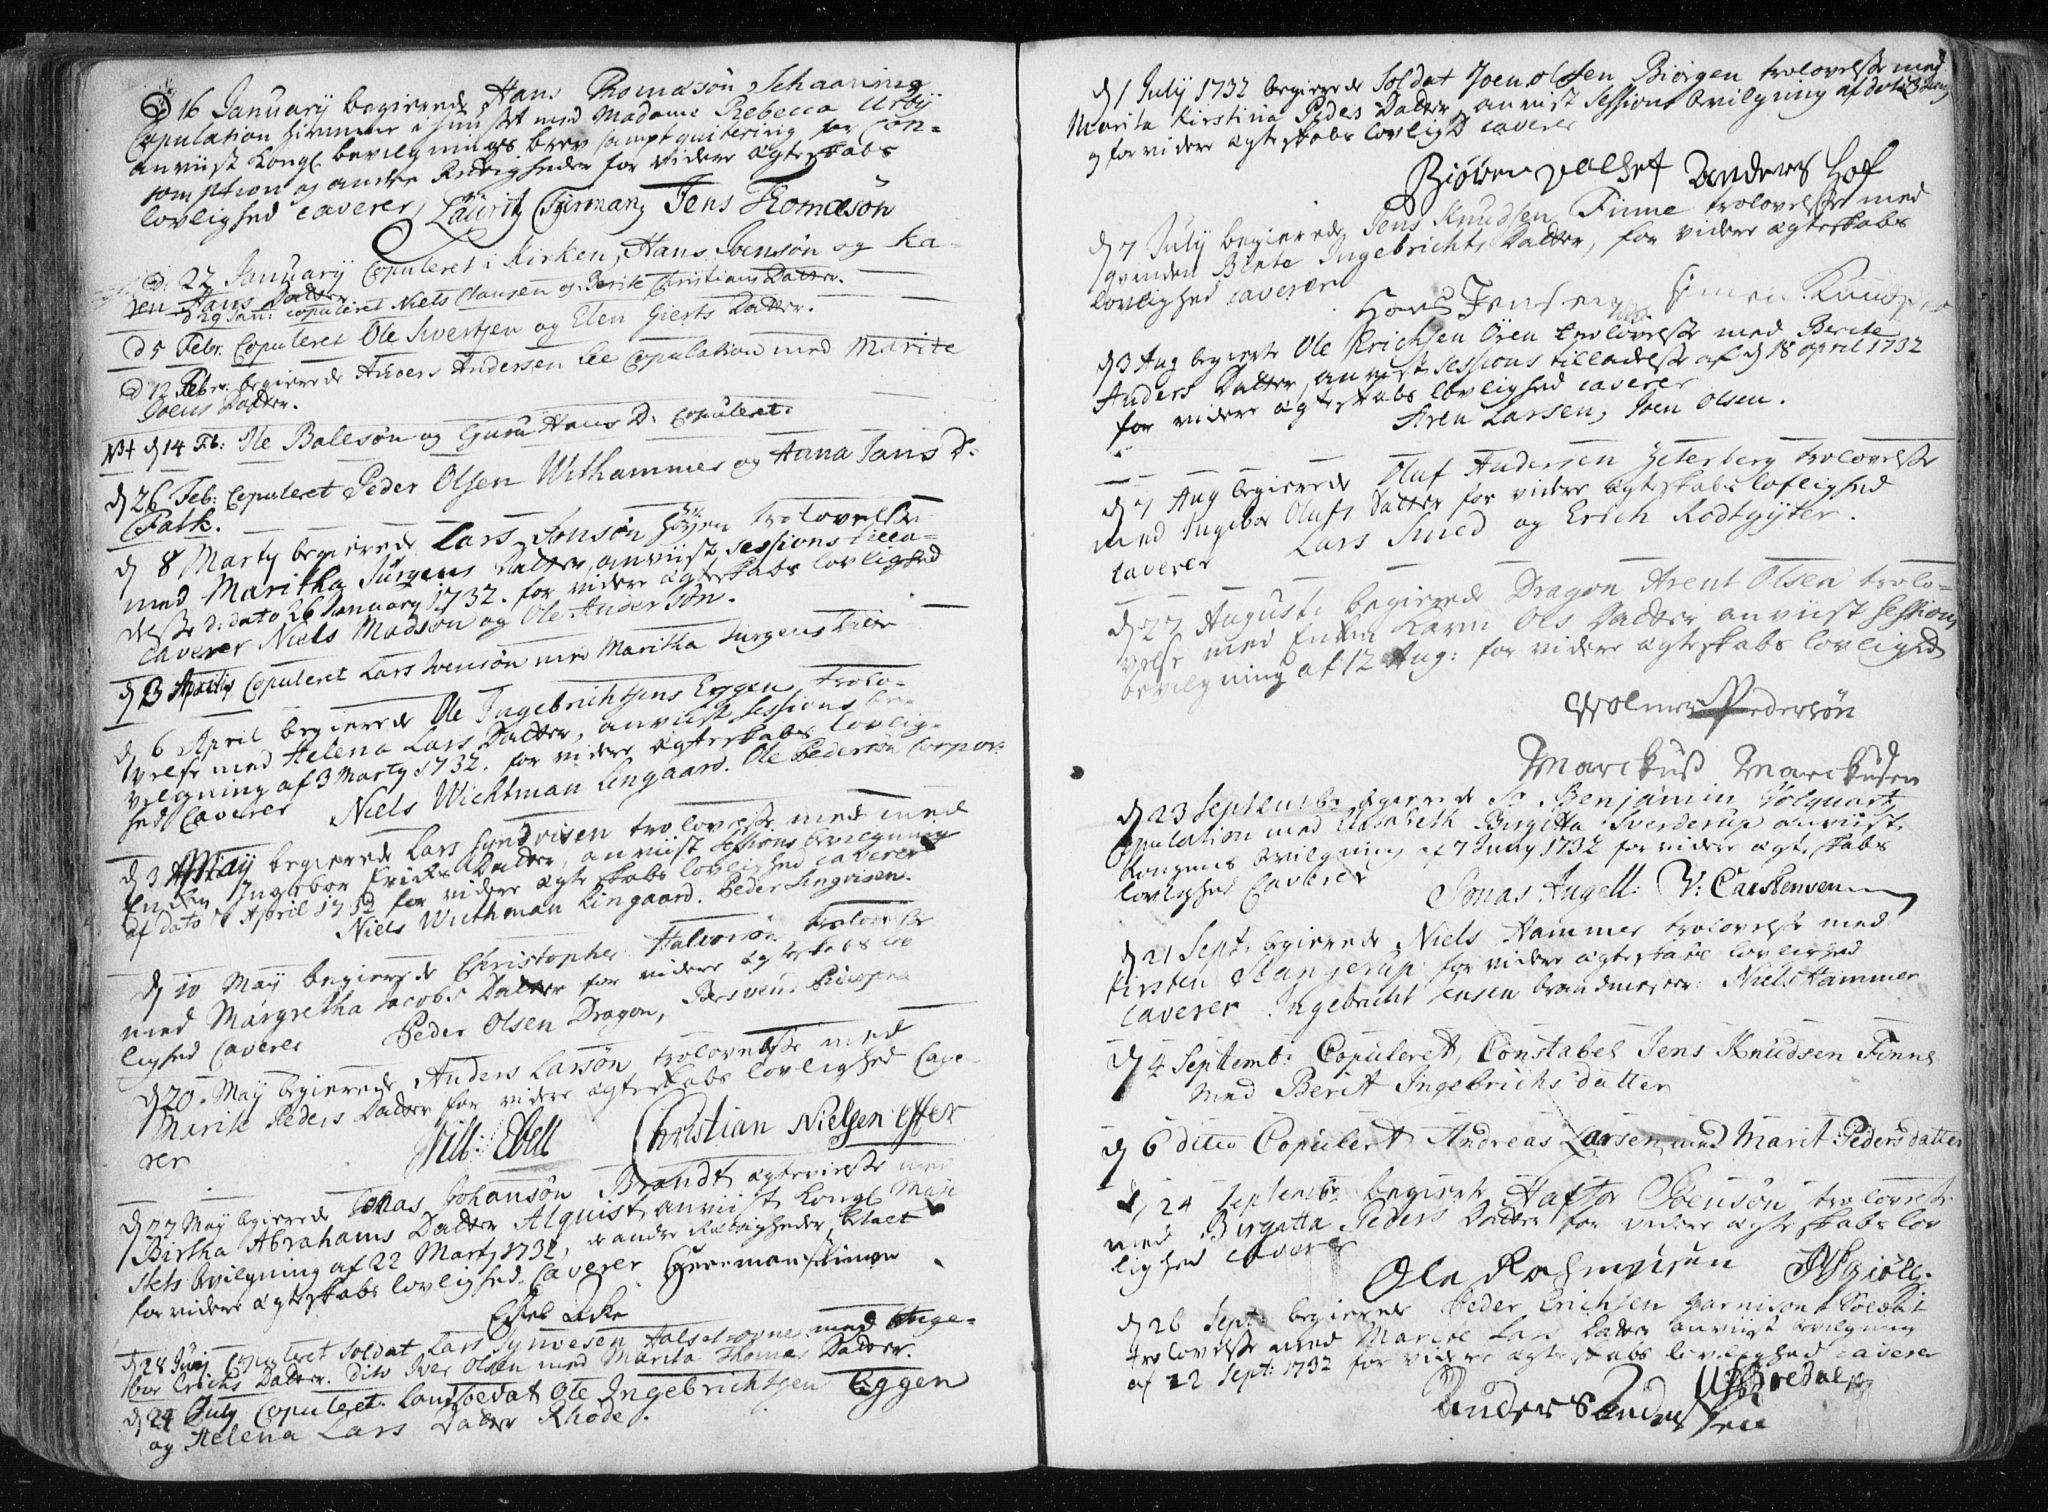 D 16 Januarÿ begierede Hans Thomasøn Schaaning
Copulation hiemme i huuset med Madame Rebecca Urbÿ
anviist Kongl bevilgnings brev sampt qvitering for Con-
somption og andre Rettigheder for videre ægteskabs
lovlighed caverer, Lauritz Jens Thomæsøn
d: 22 Januarÿ Copuleret i Kirken, Hans Joensøn og Ka-
ren Hans Datter
d 29 Jan: copuleret Niels Clausen og Berite Christians Datter.
d 5 Febr. Copuleret Ole Sivertsen og Elen Gierts Datter.
d 12 Febr: begierede Anders Andersen Lee Copulation med Marite
Joens Datter.
d 14 Feb: Ole Balesøn og Guru Hans D: copuleret.
d 26 Feb: Copuleret Peder Olsen Withammer og Anna Jans D:
Falk.
d 8 Marty begierede Lars Jonsøn trolovelse
med Maritha Jürgens Datter, anviist sessions tilla-
delse d: dato 26 January 1732. for videre ægteskabs lovlighed
caverer Niels Madsøn og Ole Andersøn.
d 13 Aprilis Copuleret Lars Ivensøn med Maritha Jurgens Datter
d 6 April begierede Ole Ingebrichtsens Eggen trolo-
velse med Helena Lars Datter, anviist sessions be-
vilgning af 3 Marty 1732. for videre ægteskabs lovlig-
hed Caverer Niels Wichtman Lingaard. Ole Pedersøn Corpor:
d 3 May begierede Lars Syndvisen trolovelse med
Enken Ingebor Erichs Datter, anviist sessions bevilgning
af dato April 1732 for videre ægteskabs lovlighed caverer
Niels Wichman Lingaard. Peder Singvisen.
d 10 Maÿ begierede Christopher Halvorsøn trolovelse
med Margretha Jacobs Datter for videre ægteskabs lov
lighed Caverer Peder Olsen Dragon,
d 20 Maÿ begierede Anders Larsøn trolovelse med
Marite Peders Datter for videre ægteskabs lovlighed Cave
rer Will: Ebell Christian Nielsen
d 22 Maÿ begierede Jonas Johansøn Brandt ægtevielse med
Birtha Abrahams Datter Alquist anviist Kongl Maje
stets bevilgning af 22 Marty 1732, andre Rettigheder klaret
for videre ægteskabs lovlighed. Caverer
d 28 Copuleret Soldat Lars Synvesen med Inge-
bor Erichs Datter. dito Iver Olsen med Marita Thomas Datter.
d 24 July Copuleret Landsoldat Ole Ingebrichtsen Eggen
og Helena Lars Datter Rhode.
d 1 Julÿ 1732 begierede Soldat Joen Olsen Biørgen trolovelse med
Marita Kirstina Peders Datter anviist Sessions bevilgning af dato
og for videre ægteskabs lovlighed caverer
Anders Hof
d 7 Julÿ begierede Jens Knudsen Finne trolovelse med
Berite Ingebrichts Datter, for videre ægteskabs
lovlighed caverer
Hans Jensen Simen
d 3 Aug begierte Ole Erichsen Ören trolovelse med Berite
Anders Datter, anviist sessions tilladelse af d 18 April 1732
for videre ægteskabs lovlighed caverer
Aren Larsen, Joen Olsen.
d 7 Aug begierede Oluf Andersen Zeterberg trolovelse
med Ingebor Olufs Datter for videre ægteskabs loflighed
caverer Lars Smed og Erich Rodtgÿter.
d 27 Augusti begierede Dragon Arent Olsen trolo-
velse med Enken Karn Ols Datter anviist sessions
bevilgning af 12 Aug: for videre ægteskabs lovlighed
Wolmer Pedersøn
Marckus Marckusen
d 23 Septemb: begierede Sr Benjamin Holquart
Copulation med Elisabeth Birgitta Sverderup anviist
Kongens bevilgning af 7 Juny 1732 for videre ægteskabs
lovlighed Caverer Jonas Angell. V: Carstensen
d 21 Sept: begierede Niels Hammer trolovelse med
Kirsten Stangerup for videre ægteskabs lovlighed
caverer Ingebricht Jensen brandmester. Niels Hammer
d 4 Septemb: Copuleret, Constabel Jens Knudsen Finne
med Berit Ingebrichsdatter
d 6 ditto Copulert Andreas Larsen med Marit Pedersdatter
d 24 Septemb: begierte Haftor Svensøn trolovelse
med Birgitta Peders Datter for videre ægteskabs lov
lighed caverer
Ole Rasmussen
d 26 Sept: begierede Peder Erichsen Garnisons Soldat
trolovelse med Marite Lars Datter anviist bevilgning
af 22 Sept: 1732 for videre ægteskabs lovlighed caverer
Anders Andersen